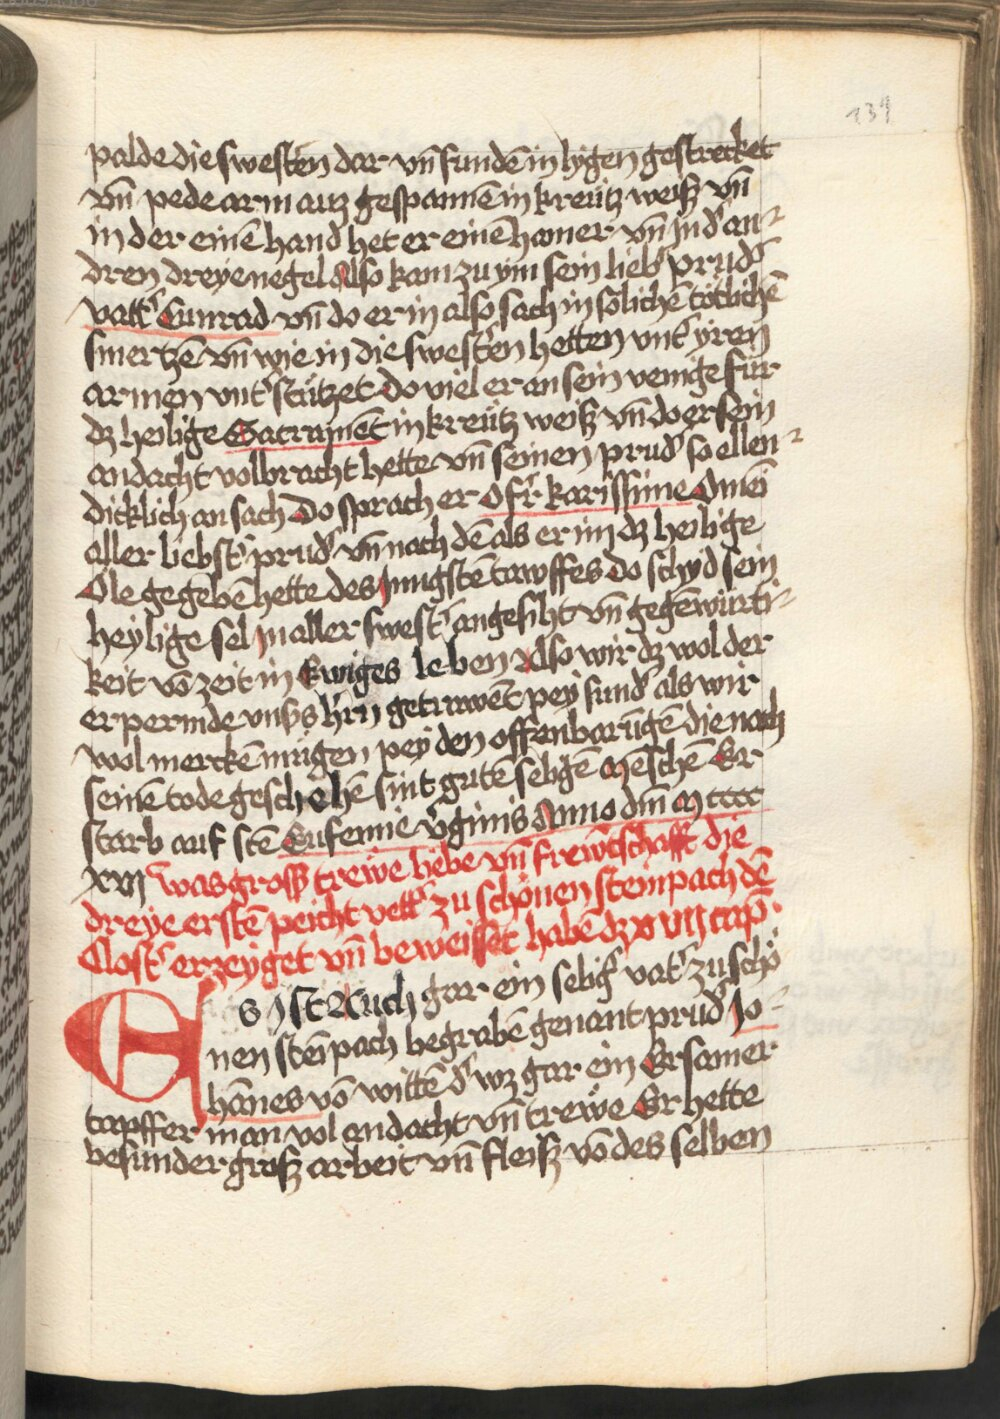 139
palde die swesten dar vn̄ fundē in ligen gestrecket
vn̄ pede arm auz gespannē in kreütz weiß vn̄
in der einē hand het er einē hamer vn̄ Jn d' an-
dren dreye negel Also kam zu ym sein lieb' prud'
vatt' Cunrad vn̄ do er in also sach in solichē tötlichē
smertzē vn̄ wie in die swest'en hetten vnt' yren
armen vnt' stützet do viel er an sein venige für
dz heilige Sacramēt in kreütz weiß vn̄ do er sein
andacht volbracht hette vn̄ seinen prud' so ellen-
dicklich an sach Do sprach er O fr̄ karissime O mei
aller liebst' prud' vn̄ nach dē als er im dz heilige
Ole gegebē hette des Jungstē tawffes do schyd sein
heylige sel Jn aller swest' angesiht vn̄ gegēwürti-
keit vō zeit in Ewiges leben Also wir dz wol der
erpermde vnsßs hr̄n getrawēt pey sund' als wir
wol merckē mügen pey den offenbarūgē die nach
seinē tode geschehē sint gutē seligē mēschē Er
starb auf stē Eufemie v'ginis Anno dm̄ M cccc
XXVI was gross trewe liebe vn̄ frewtschafft die
dreye erstē peicht vett' zu schönen steinpach dē
Clost' erzeyget vn̄ beweisset habē dz XVII cap̄.
Es Jst Auch gar ein selig' vat' zu schö
nen steī pach begrabē genant prud' Jo-
hānes vō wittē d' wz gar ein Ersamer
tapffer man vol andacht vn̄ trewe Er hette
besunder groß arbeit vn̄ fleiß vō des selben